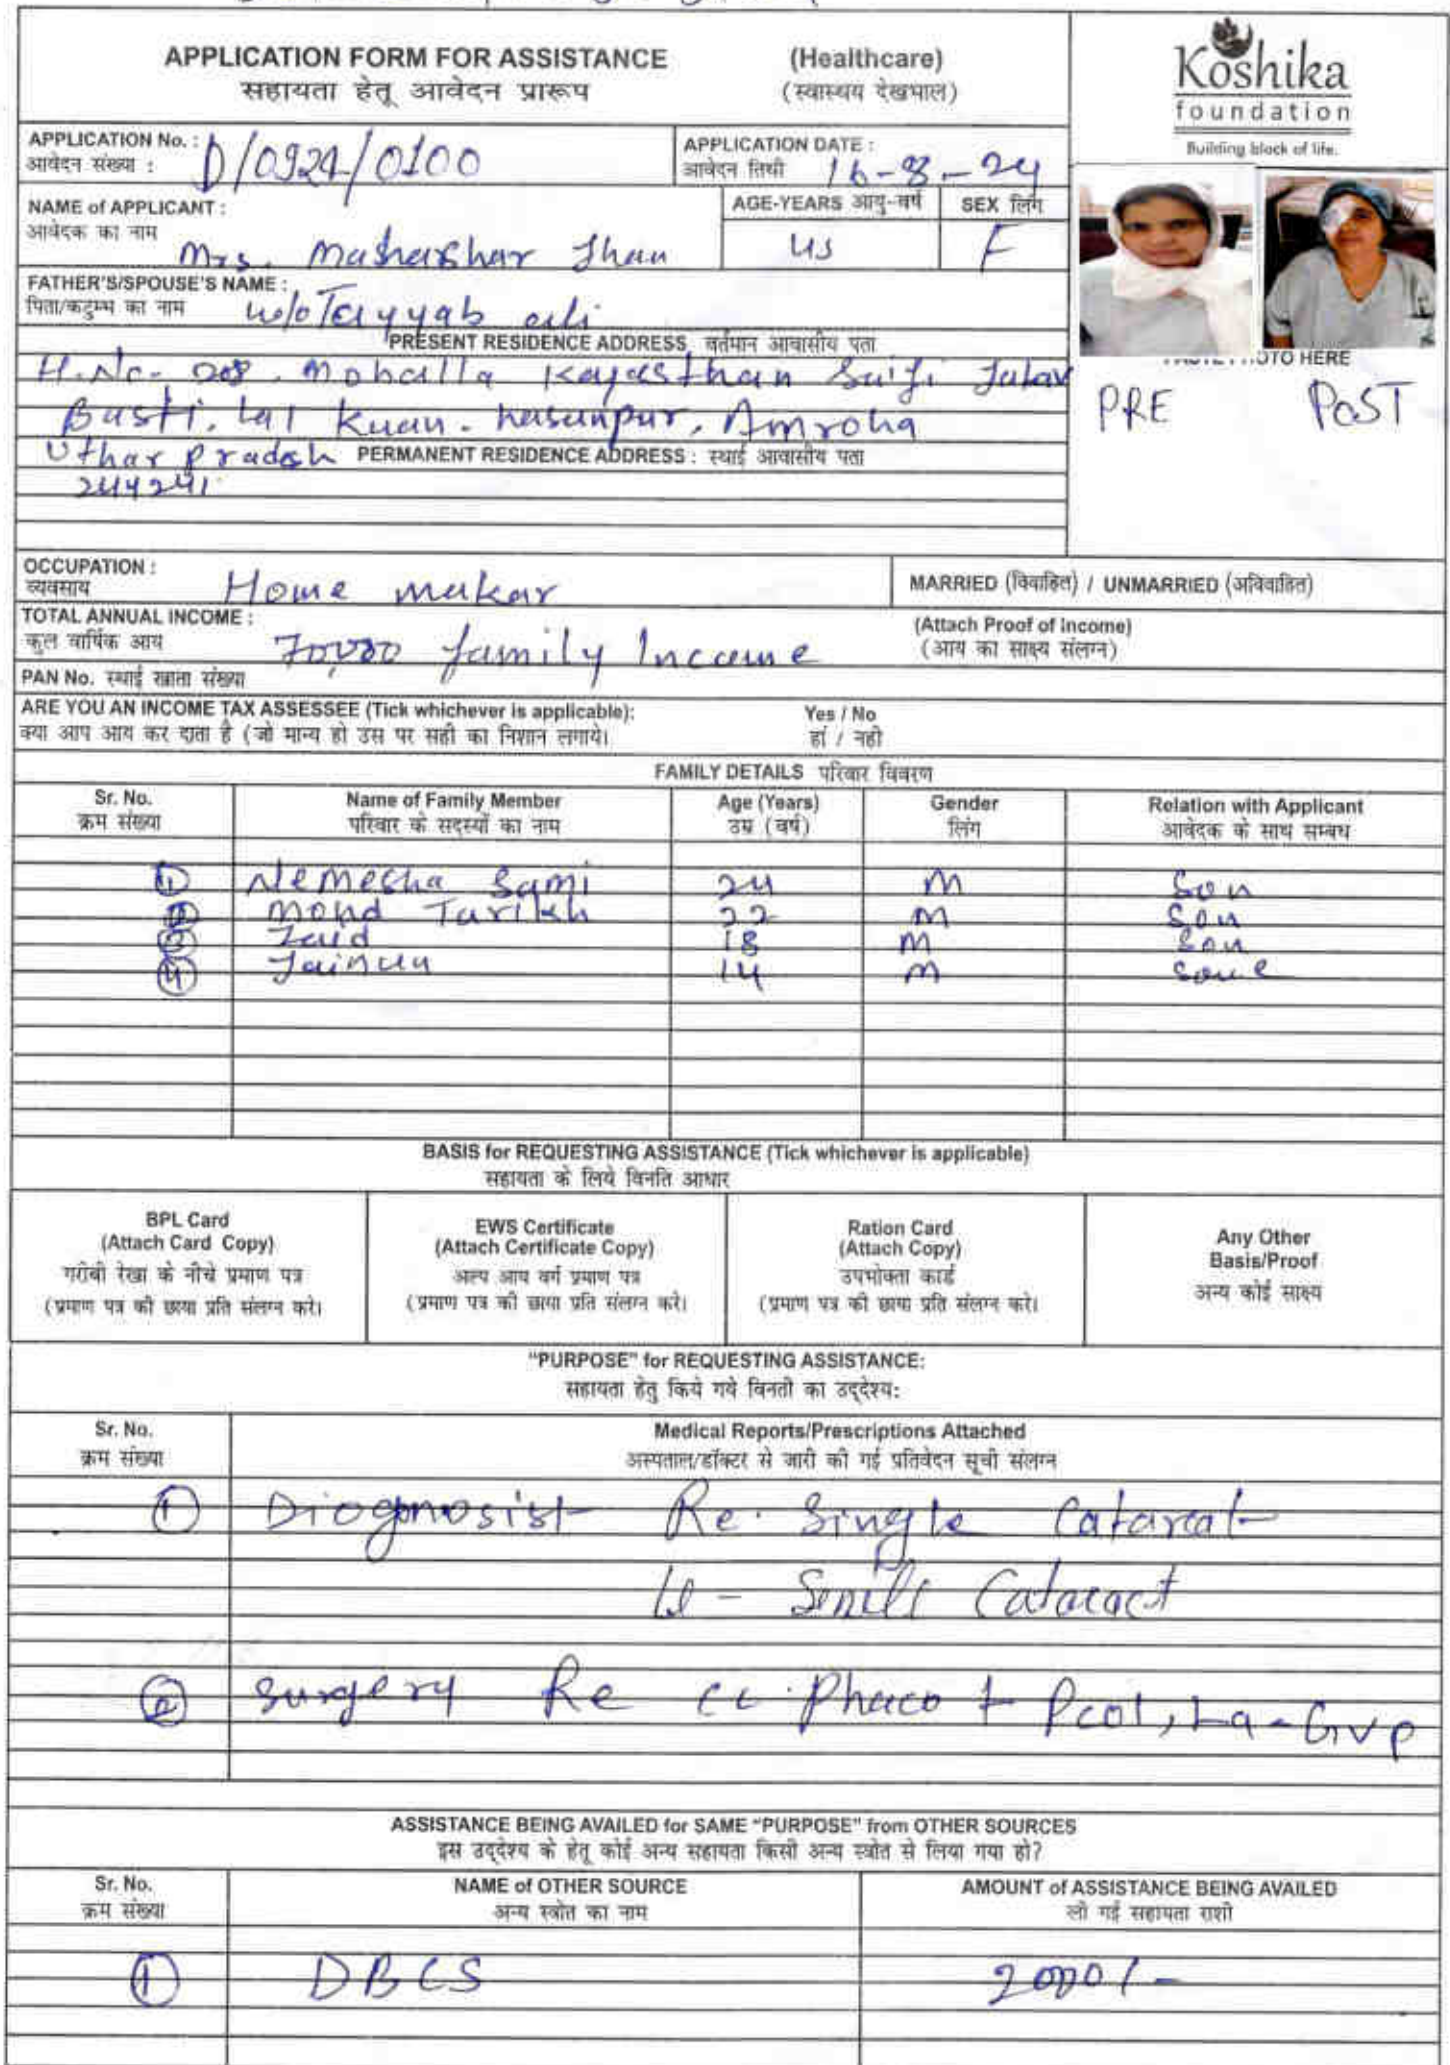 APPLICATION FORM FOR ASSISTANCE (Healthcare)
सहायता हेतू आवेदन प्रारूप (स्वास्थय देखभाल)
Koshika
foundation
Building block of life.
APPLICATION No. : D/0924/0100
आवेदन संख्या :
APPLICATION DATE : 16-8-24
आवेदन तिथी
NAME of APPLICANT :
आवेदक का नाम Mrs. Masharshar Jhan
AGE-YEARS आयु-वर्ष 45
SEX लिंग F
FATHER'S/SPOUSE'S NAME :
पिता/कटुम्भ का नाम w/o Tayyab ali
PRESENT RESIDENCE ADDRESS वर्तमान आवासीय पता
H.No- 208. Mohalla Kayasthan Saifi
Basti. Lal Kuan. hasanpur. Amroha
Uthar Pradesh PERMANENT RESIDENCE ADDRESS : स्थाई आवासीय पता
244241
PHOTO HERE
PRE POST
OCCUPATION :
व्यवसाय Home makar
MARRIED (विवाहित) / UNMARRIED (अविवाहित)
TOTAL ANNUAL INCOME :
कुल वार्षिक आय 70,000 family Income
(Attach Proof of Income)
(आय का साक्ष्य संलग्न)
PAN No. स्थाई खाता संख्या
ARE YOU AN INCOME TAX ASSESSEE (Tick whichever is applicable): Yes / No
क्या आप आय कर दाता है (जो मान्य हो उस पर सही का निशान लगाये। हां / नही
FAMILY DETAILS परिवार विवरण
Sr. No. Name of Family Member Age (Years) Gender Relation with Applicant
क्रम संख्या परिवार के सदस्यों का नाम उम्र (वर्ष) लिंग आवेदक के साथ सम्बध
① Nemesha Sami 24 M Son
Mohd Tarikh 22 M Son
Zaid 18 M Son
④ 14 M
BASIS for REQUESTING ASSISTANCE (Tick whichever is applicable)
सहायता के लिये विनति आधार
BPL Card
(Attach Card Copy)
गरीबी रेखा के नीचे प्रमाण पत्र
(प्रमाण पत्र की छाया प्रति संलग्न करे।
EWS Certificate
(Attach Certificate Copy)
अल्प आय वर्ग प्रमाण पत्र
(प्रमाण पत्र की छाया प्रति संलग्न करे।
Ration Card
(Attach Copy)
उपभोक्ता कार्ड
(प्रमाण पत्र की छाया प्रति संलग्न करे।
Any Other
Basis/Proof
अन्य कोई साक्ष्य
"PURPOSE" for REQUESTING ASSISTANCE:
सहायता हेतु किये गये विनती का उद्देश्य:
Sr. No. Medical Reports/Prescriptions Attached
क्रम संख्या अस्पताल/डॉक्टर से जारी की गई प्रतिवेदन सूची संलग्न
① Diogonosist Re. Single Catarcat
Le - Senile Cataract
② Surgery Re cc. Phaco + Pcol, La-Gvp
ASSISTANCE BEING AVAILED for SAME "PURPOSE" from OTHER SOURCES
इस उद्देश्य के हेतू कोई अन्य सहायता किसी अन्य स्त्रोत से लिया गया हो?
Sr. No. NAME of OTHER SOURCE AMOUNT of ASSISTANCE BEING AVAILED
क्रम संख्या अन्य स्त्रोत का नाम ली गई सहायता राशी
① DBCS 2000/-